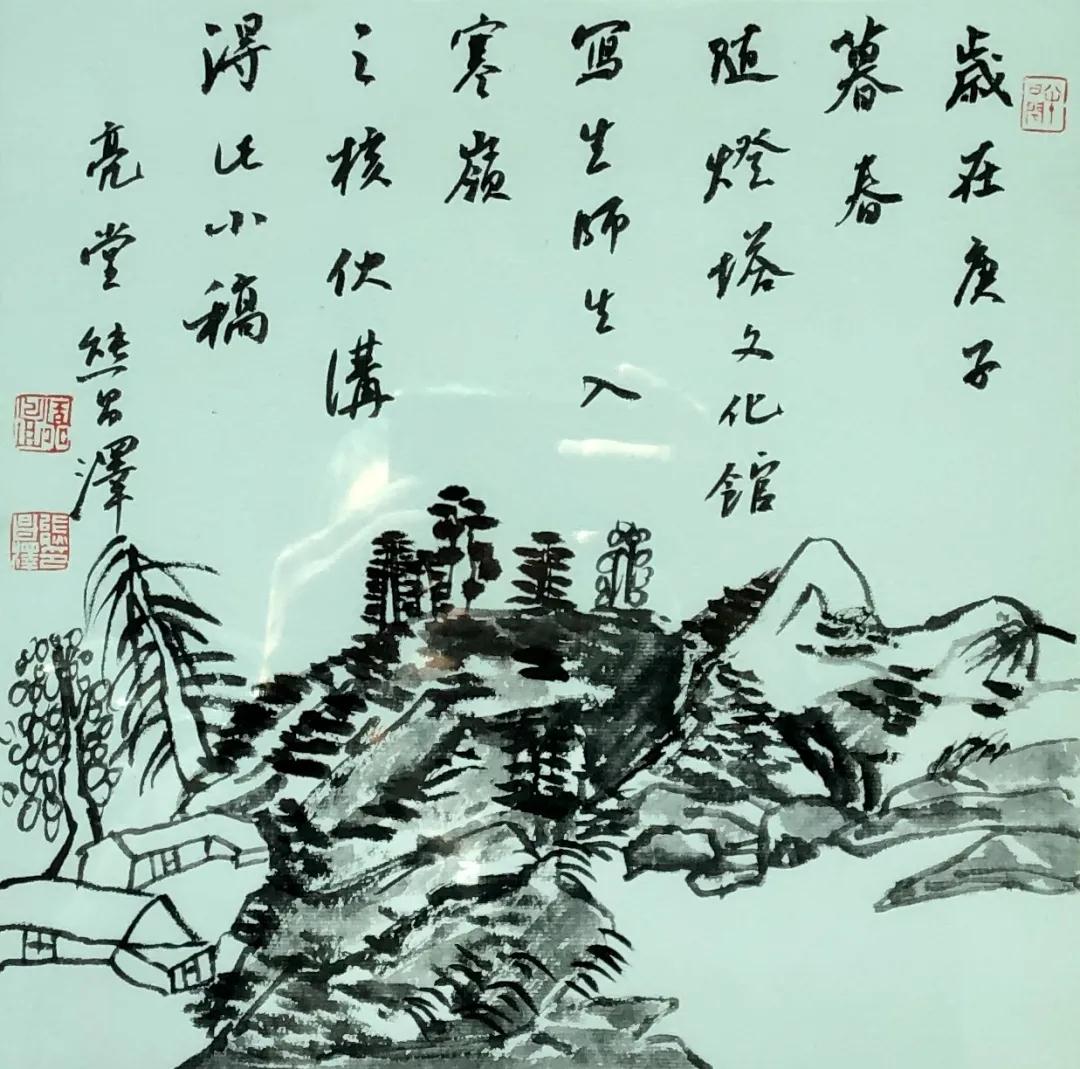 歲在庚子
暮春
随燈塔文化館
寫生師生入
寒嶺
之核伙溝
得此小稿
亮堂 昌澤